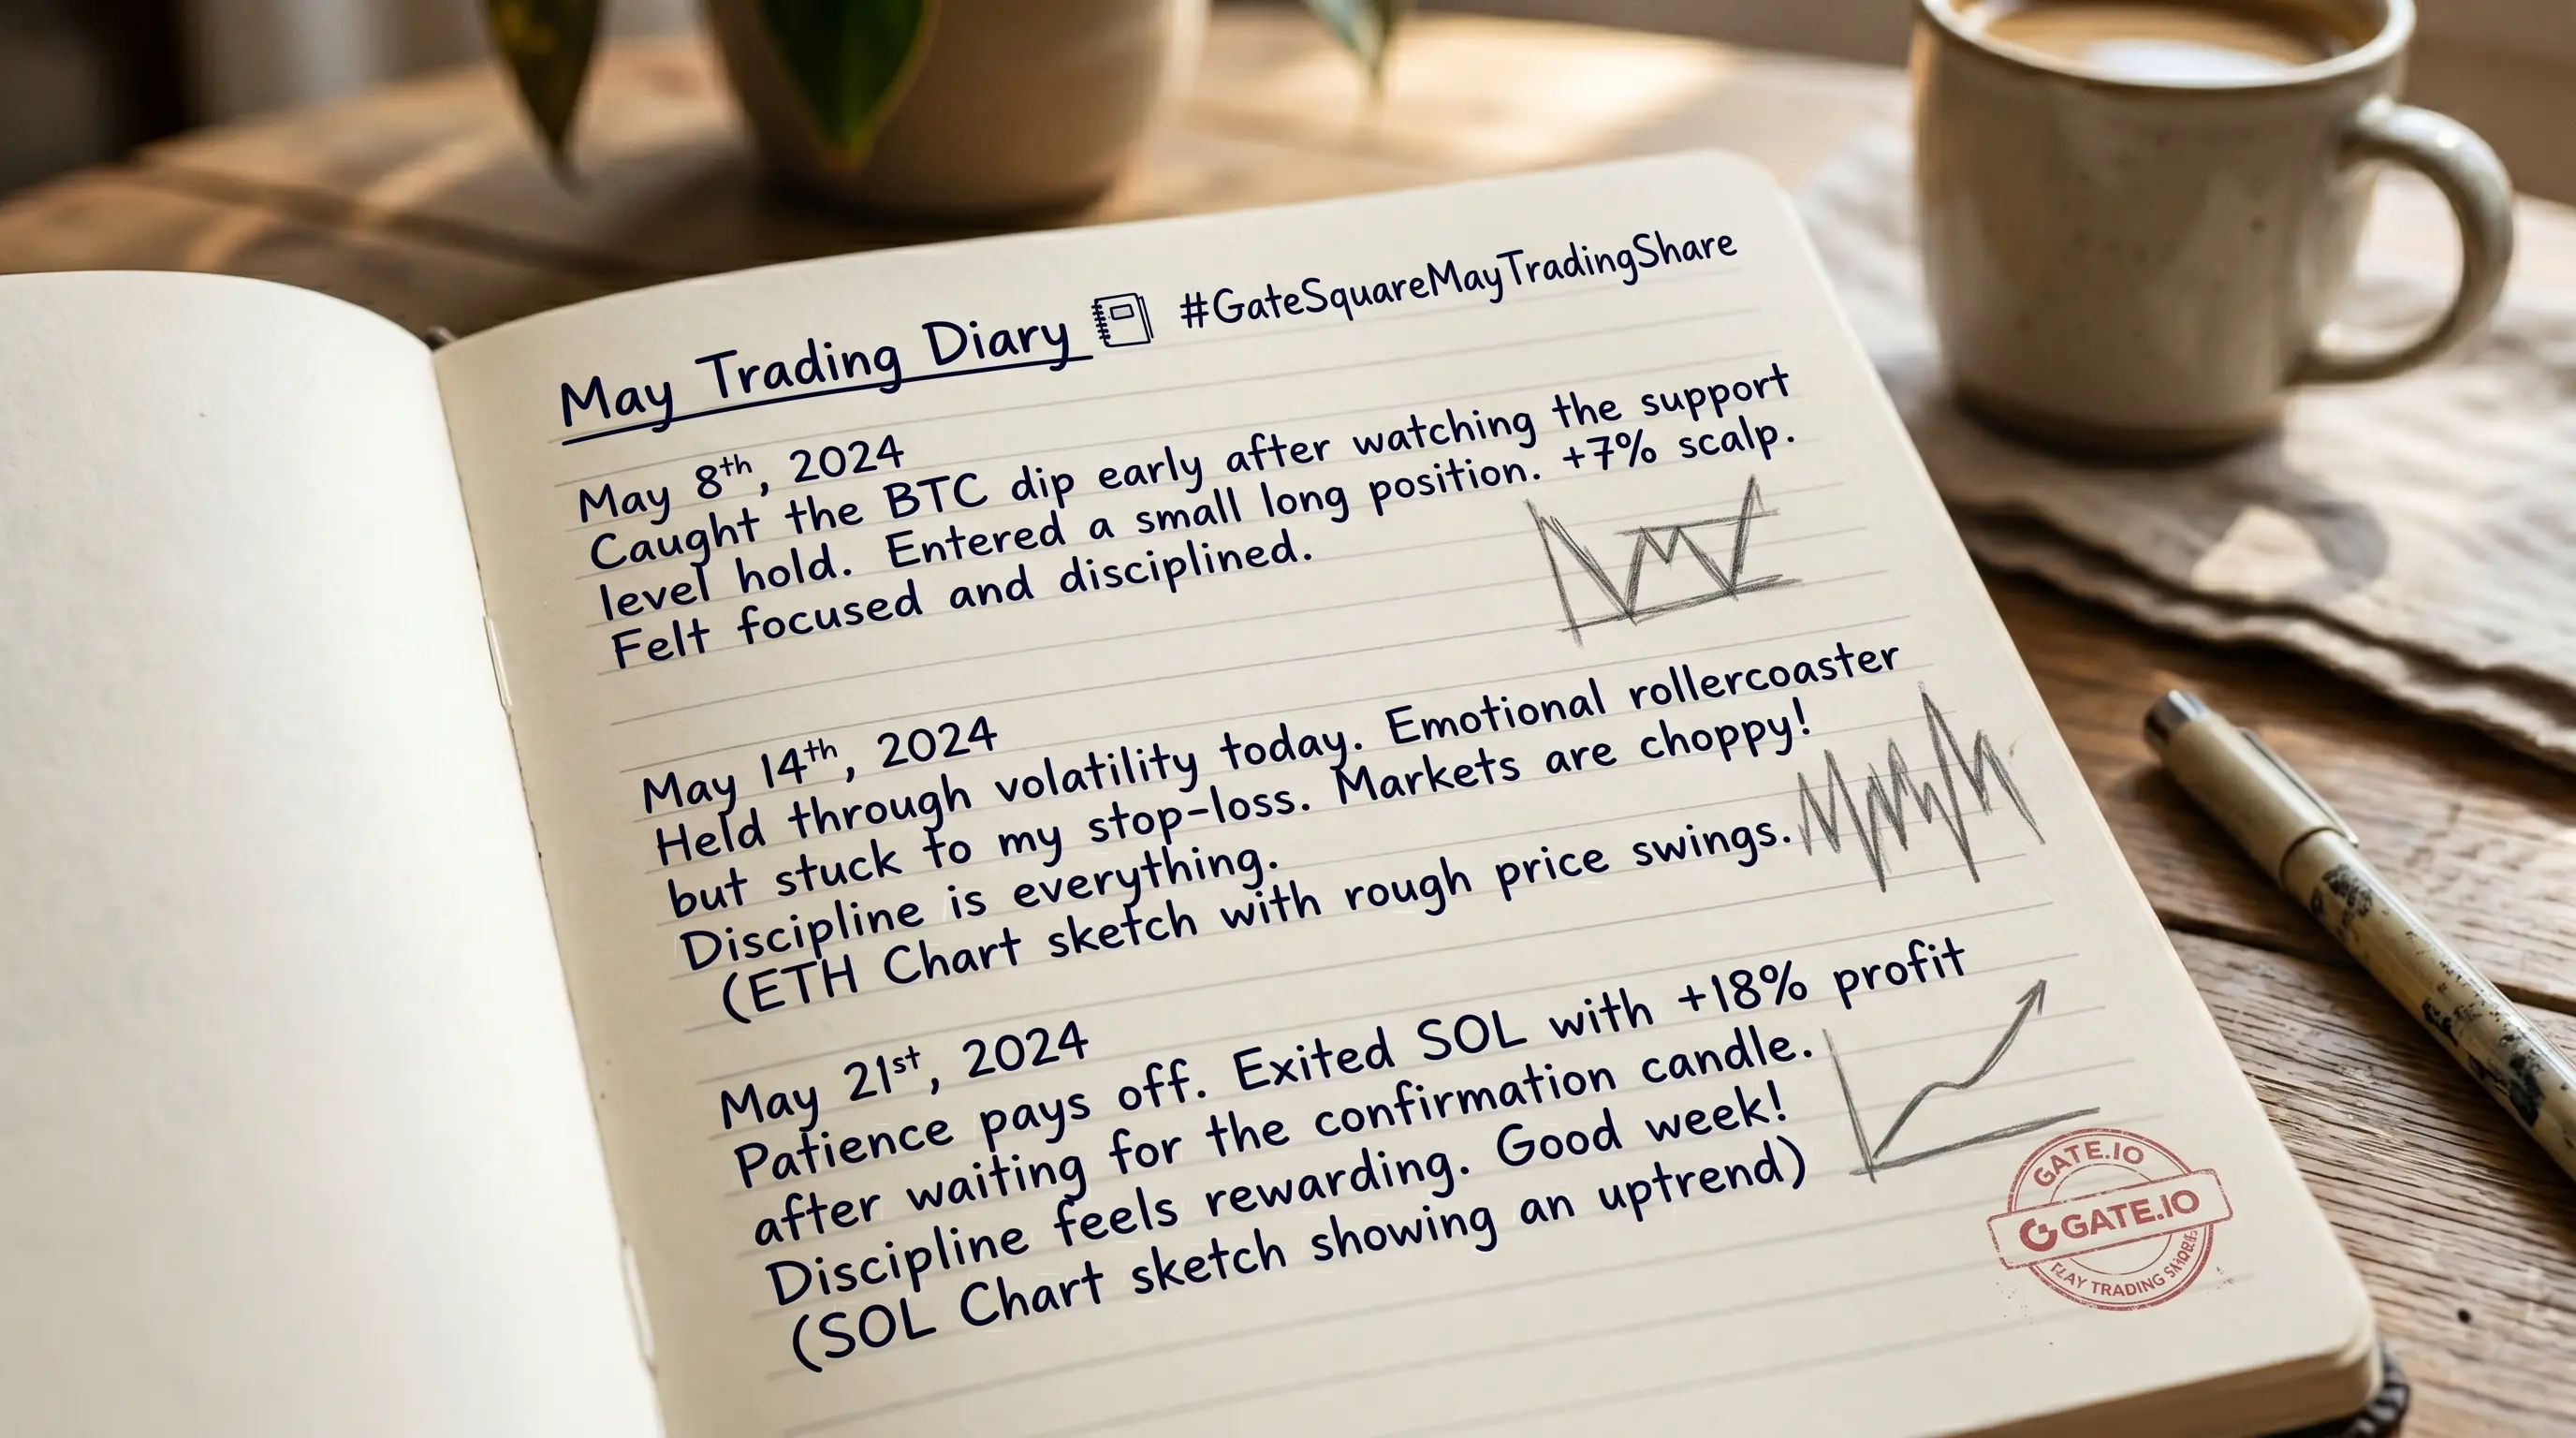 May Trading Diary #GateSquareMayTradingShare
May 8th, 2024
Caught the BTC dip early after watching the support
level hold. Entered a small long position. +7% scalp.
Felt focused and disciplined.
May 14th, 2024
Held through volatility today. Emotional rollercoaster
but stuck to my stop-loss. Markets are choppy!
Discipline is everything.
(ETH Chart sketch with rough price swings.
May 21st, 2024
Patience pays off. Exited SOL with +18% profit
after waiting for the confirmation candle.
Discipline feels rewarding. Good week!
(SOL Chart sketch showing an uptrend)
GATE.IO
GATE.IO
TRADING